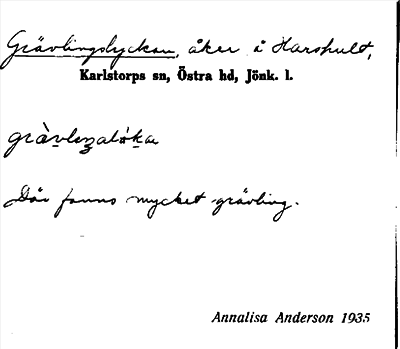 Grävlingslyckan, åker i Harshult,
Karlstorps sn, Östra hd, Jönk. l.
Där fanns mycket grävling.
Annalisa Anderson 1935